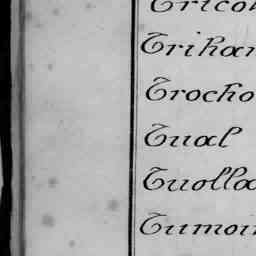 Trico
Trihar
Trocho
Tual
Tuolla
Tumoi